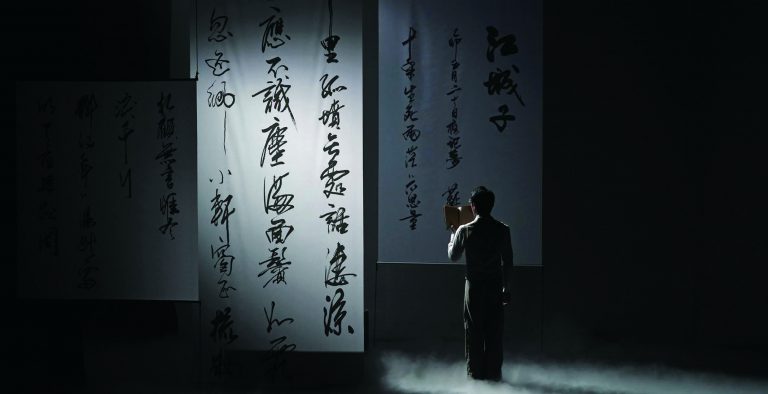 江城子
卯正月二十日夜記夢 蘇
十年生死兩茫茫不思量
里孤墳無處話凄涼
應不識塵滿面鬢如霜
忽還鄉小軒窗正梳妝
相顧無言惟有
淚千行
料得年年腸斷處
明月夜短松岡